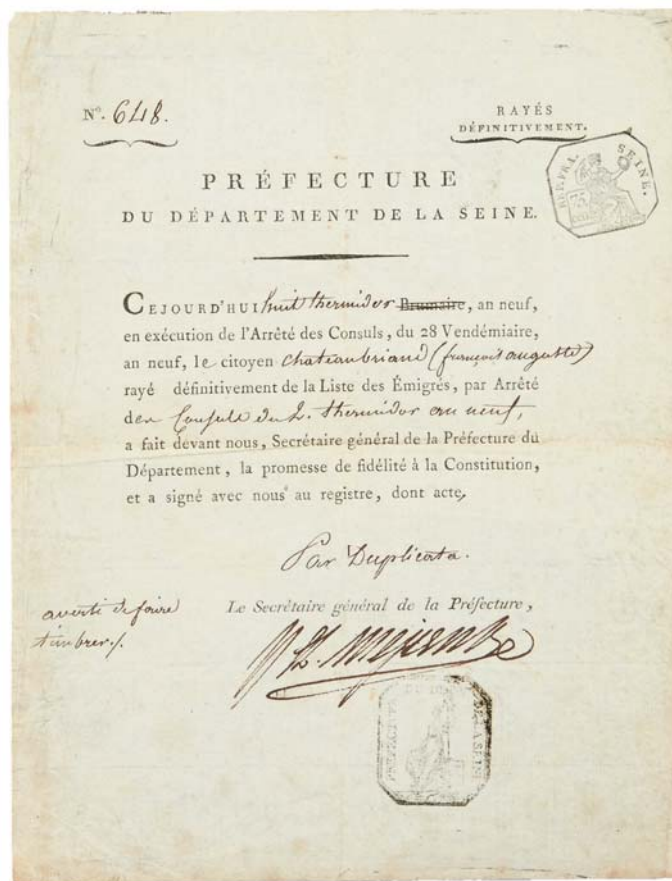 N°. 648.
RAYÉS
DÉFINITIVEMENT.
RÉP. FRA. SEINE.
75
PRÉFECTURE
DU DÉPARTEMENT DE LA SEINE.
CEJOURD'HUI huit thermidor Brumaire, an neuf,
en exécution de l'Arrêté des Consuls, du 28 Vendémiaire,
an neuf, le citoyen chateaubriand (françois auguste)
rayé définitivement de la Liste des Émigrés, par Arrêté
des Consuls du 2. thermidor an neuf,
a fait devant nous, Secrétaire général de la Préfecture du
Département, la promesse de fidélité à la Constitution,
et a signé avec nous au registre, dont acte,
Par Duplicata.
averti de faire
timbrer./.
Le Secrétaire général de la Préfecture,
PRÉFECTURE DU DÉP. DE LA SEINE